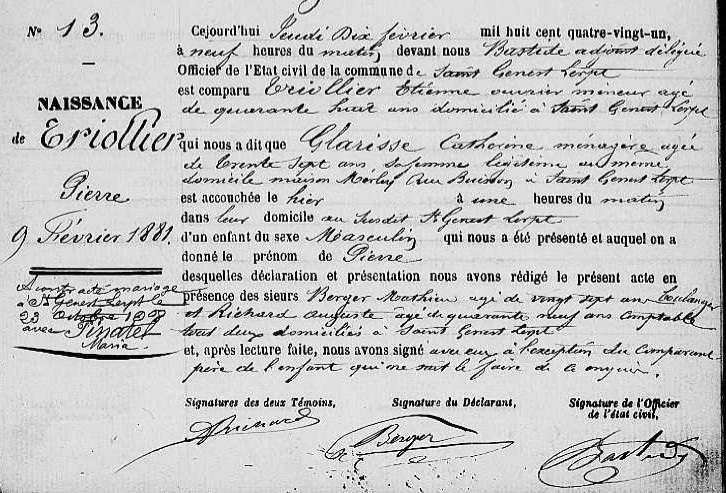 N° 13.
NAISSANCE
de Triollier
Pierre
9 Février 1881.
A contracté mariage
à St Genest Lerpt le
22 Octobre
avec Pinatel
Maria.
Cejourd'hui Jeudi Dix février mil huit cent quatre-vingt-un,
à neuf heures du matin devant nous Bastide adjoint délégué
Officier de l'Etat civil de la commune de Saint Genest Lerpt
est comparu Triollier Etienne ouvrier mineur agé
de quarante huit ans domicilié à Saint Genest Lerpt
qui nous a dit que Glarisse Catherine ménagère agée
de trente Sept ans sa femme légitime au même
domicile maison Merley Rue Buisson à Saint Genest Lerpt
est accouchée le hier à une heures du matin
dans leur domicile au Susdit St Genest Lerpt
d'un enfant du sexe Masculin qui nous a été présenté et auquel on a
donné le prénom de Pierre
desquelles déclaration et présentation nous avons rédigé le présent acte en
présence des sieurs Berger Mathieu agé de vingt sept ans boulanger
et Richard Auguste agé de quarante neuf ans Comptable
tous deux domiciliés à Saint Genest Lerpt
et, après lecture faite, nous avons signé avec eux à l'exception du Comparant
père de l'enfant qui ne sait le faire de ce enquis.
Signatures des deux Témoins, Signature du Déclarant, Signature de l'Officier
de l'état civil,
ARichard Berger Bastide